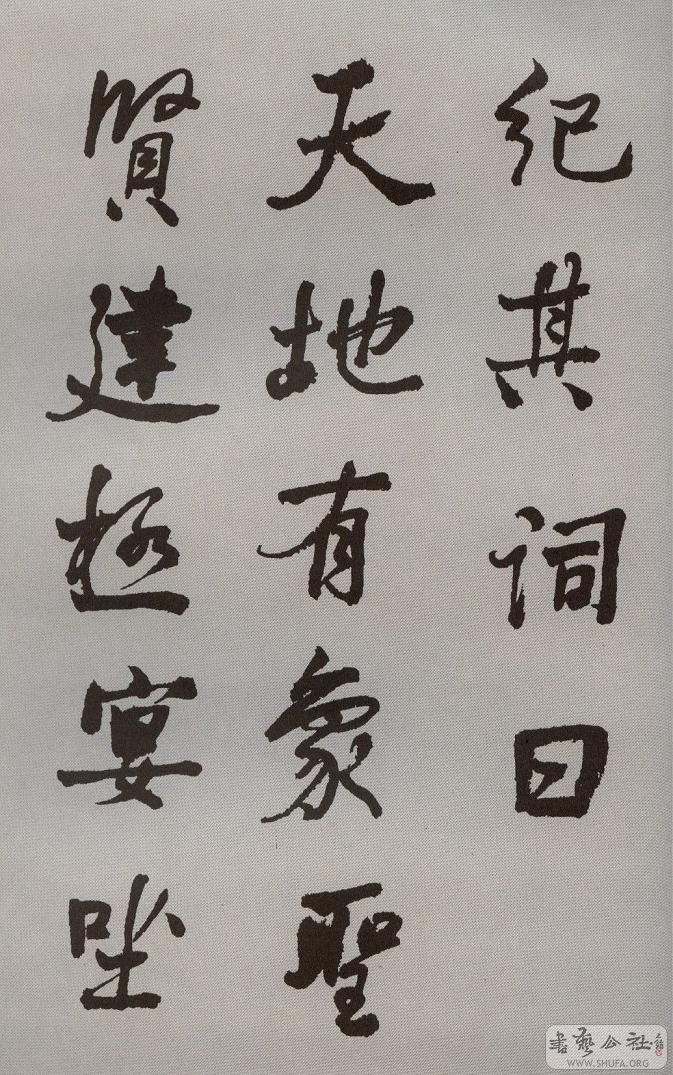 纪其词曰
天地有象聖
賢建極宴坐
書藝公社
WWW.SHUFA.ORG